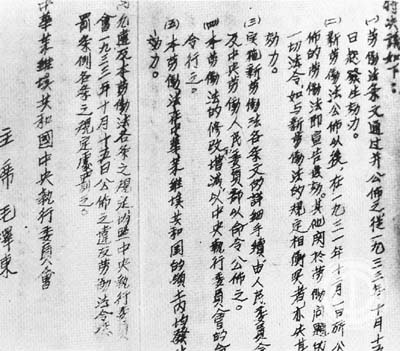 特決議如下:
㈠ 勞働法条文通过并公佈之後一九三三年十月十五
日起發生効力。
㈡ 新勞働法公佈以後,在一九三一年十月一日所公
佈的勞働法即宣告廢効。其他関於勞働问題的
一切法令如与新勞働法的規定相衝突者亦失其
効力。
㈢ 实施新勞働法各条文的詳細手續由人民委員会
及中央勞働人民委員部以命令公佈之。
㈣ 本勞働法的修改增減,以中央执行委員会的命
令行之。
㈤ 本勞働法在中華苏維埃共和国的領土内均發生
効力。
凡違反本勞働法各条之規定的照中央执行委員
會一九三三年十月十五日公佈之違反勞働法令懲
罰条例各条之規定處罰之。
中華苏維埃共和國中央執行委員會
主席 毛澤東